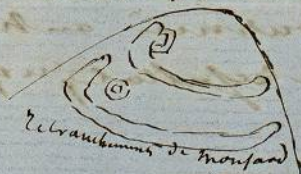 Retranchements de Monsard